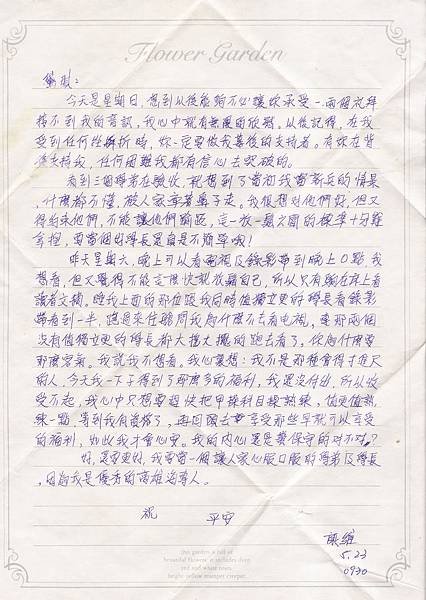 Flower Garden
今天是星期日,想到從能夠不心讓妳承受一兩個禮拜
接不到我的音訊,我心中就有無限的欣慰。從後記得,在我
受到任何挫折時,妳一定要做我幕後的支持者。有妳在背
後支持我,任何困難我都有信心去突破的。
看到三個學弟在驗收,就想到了當初我當新兵的情景
,什麼都不懂,被人家牽著鼻子走。我很想對他們好,但又
得約束他們,不能讓他們開跑,這一放一緊之間的標準十分難
掌握,要當個好學長還真是不簡單哦!
昨天星期六,晚上可以看電視及錄影帶到晚上0點,我
想看,但又覺得不能這麼快就放鬆自己,所以只有躺在床上看
讀者文摘。睡我上面的那位跟我同時值獨立更的學長看錄影
帶看到一半,跑過來住驗問我為什麼不去看電視,連那兩個
沒有值獨立更的學長都大搖大擺的跑去看了,你為什麼要
那麼客氣。我說我不想看。我心裏想:我不是那種會得寸進尺
的人,今天我一下子得到了那麼多的福利,我還沒付出,所以收
受不起,我心中只想要趕快把甲操科目操熟練,值更值熟
練一點,等到我有資格了,再回頭去享受那些早就可以享受
的福利,如此我才會心安。我的內心還是蠻保守的對不對?
好,還要更好,我要當一個讓人家心服口服的學弟及學長
,因為我是優秀的高雄前導人。
祝
平安
5.23
0930
this garden is full of
beautiful flowers. it includes deep
red and white roses,
bright yellow trumpet creeper.